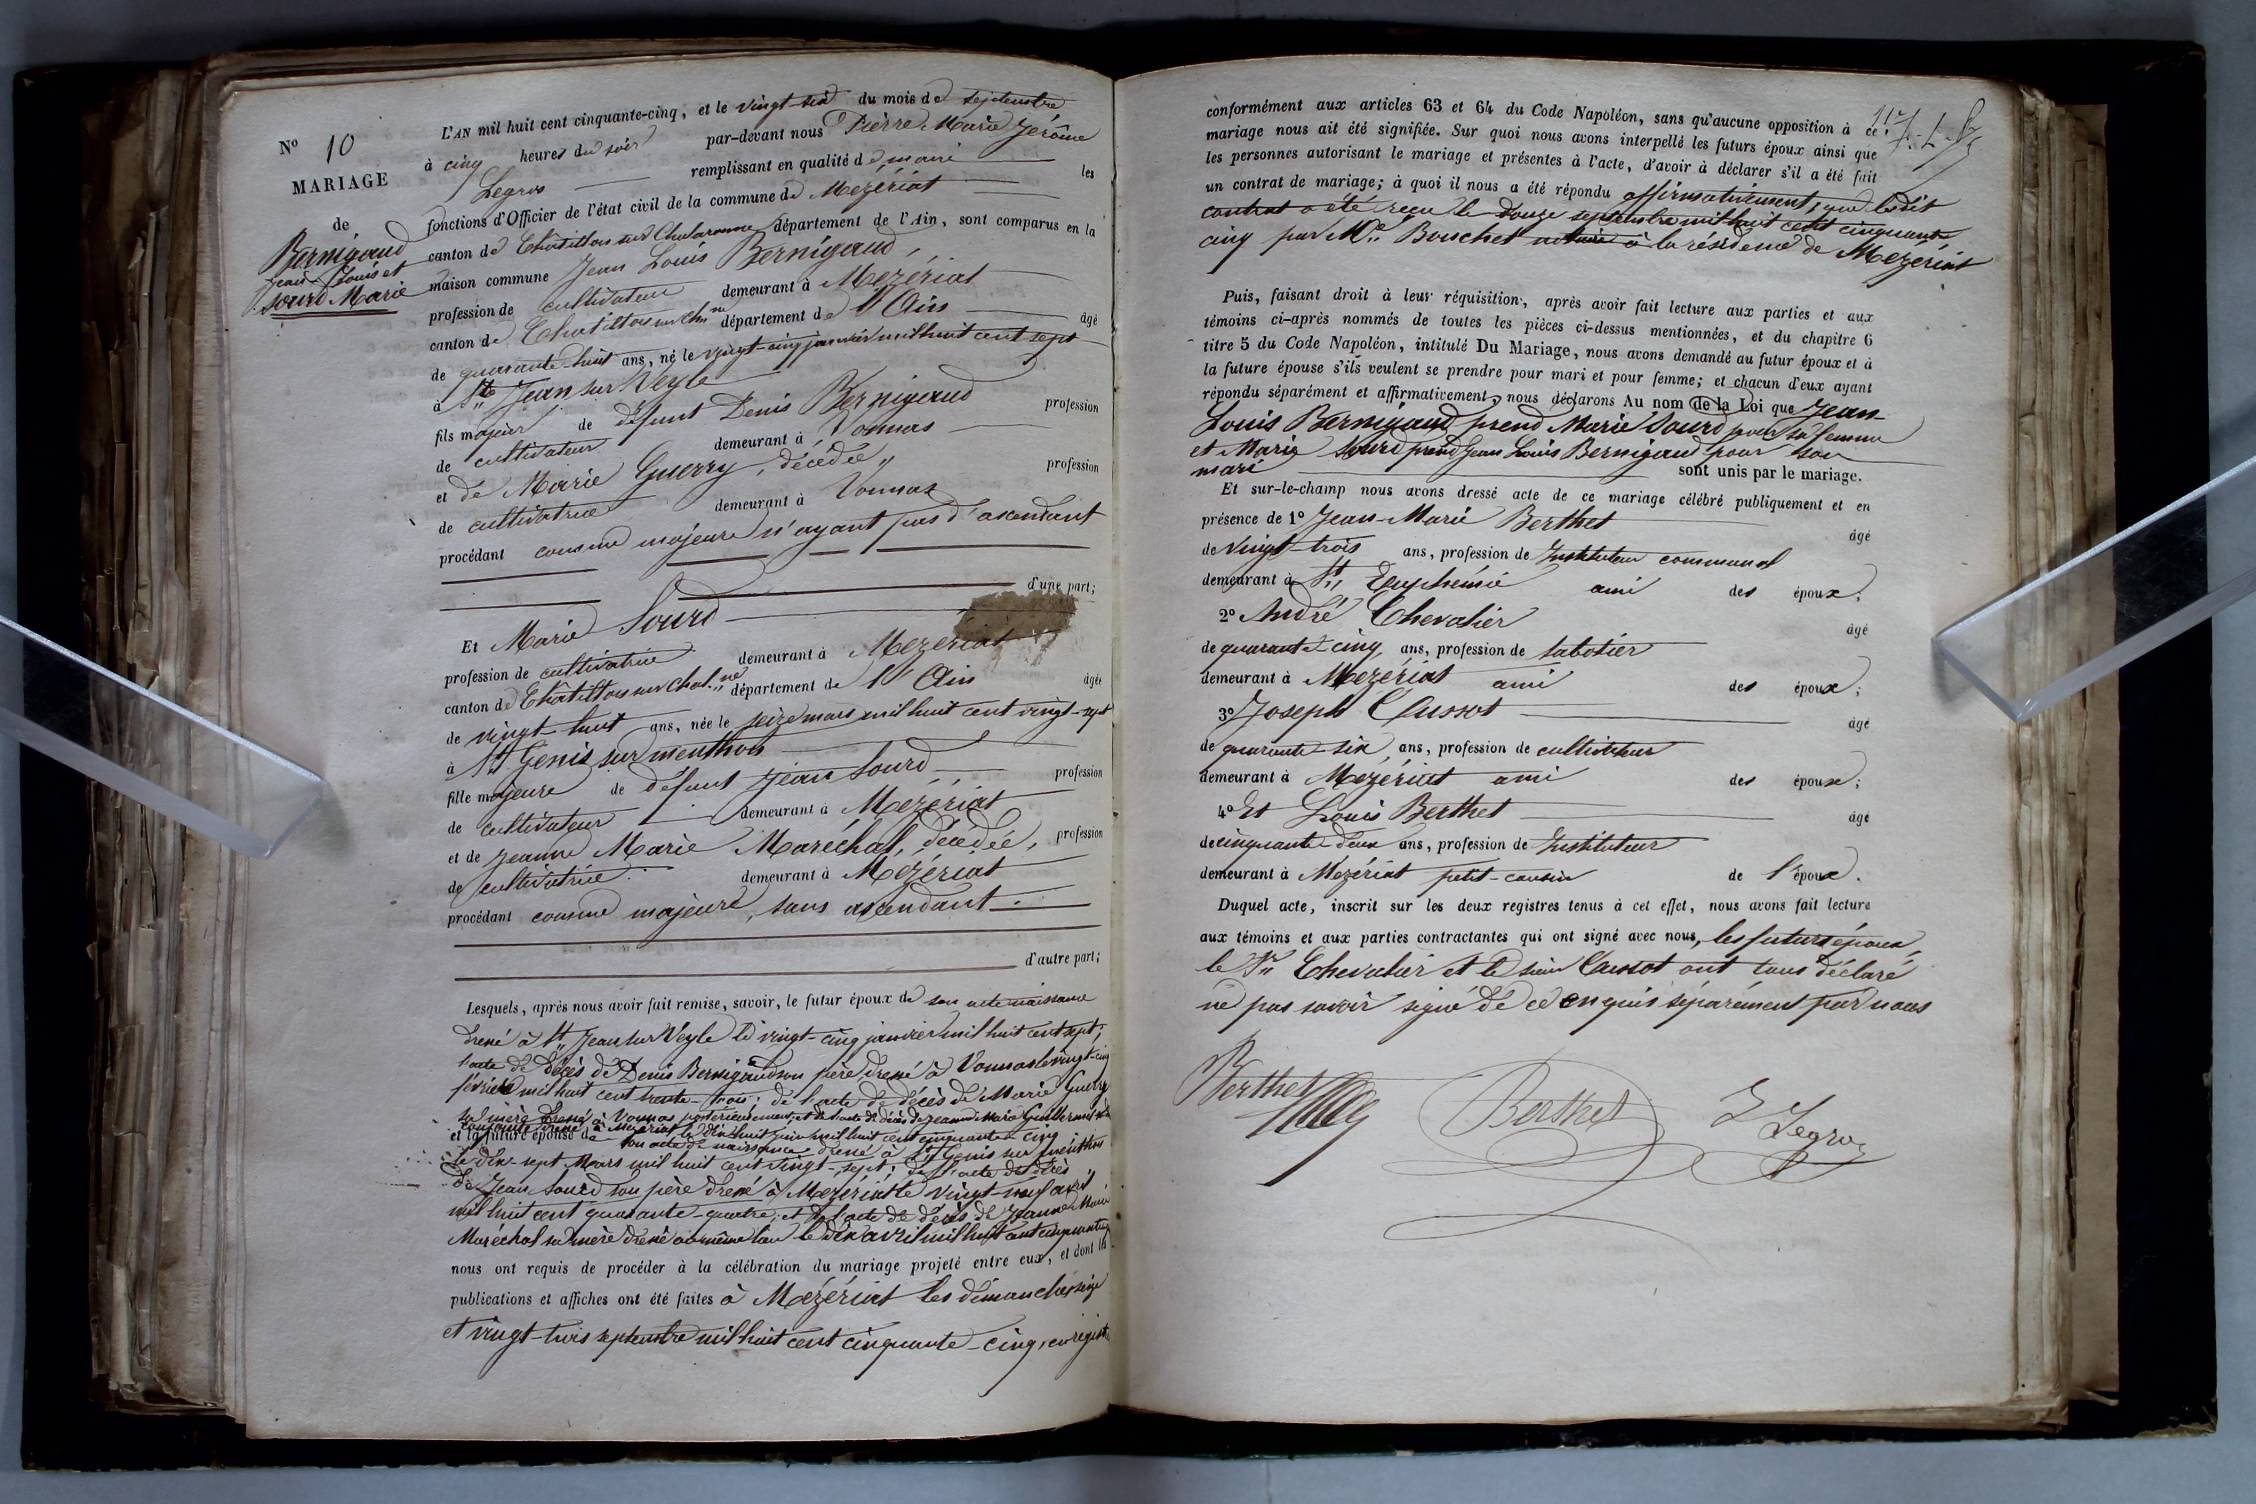 N° 10
MARIAGE
de
Bernigaud
Jean-Louis et
Sourd Marie
L'AN mil huit cent cinquante-cinq, et le vingt-six du mois de septembre
à cinq heures du soir par-devant nous Pierre Marie Jérôme
Legros remplissant en qualité de maire les
fonctions d'Officier de l'état civil de la commune de Mezériat
canton de Chatillon sur Chalaronne département de l'Ain, sont comparus en la
maison commune Jean Louis Bernigaud,
profession de cultivateur demeurant à Mezériat
canton de Chatillon sur Ch.ne département de l'Ain âgé
de quarante-huit ans, né le vingt-cinq janvier mil huit cent sept
à St Jean sur Veyle
fils majeur de défunt Denis Bernigaud profession
de cultivateur demeurant à Vonnas
et de Marie Guerry, décédée, profession
de cultivatrice demeurant à Vonnas
procédant comme majeure n'ayant pas d'ascendant
d'une part;
Et Marie Sourd
profession de cultivatrice demeurant à Mezériat
canton de Châtillon sur Chal.ne département de l'Ain âgée
de vingt-huit ans, née le seize mars mil huit cent vingt-sept
à St Genis sur menthon
fille majeure de défunt Jean Sourd profession
de cultivateur demeurant à Mezériat
et de Jeanne Marie Maréchal, décédée, profession
de cultivatrice demeurant à Mézériat
procédant comme majeure, sans ascendant.
d'autre part;
Lesquels, après nous avoir fait remise, savoir, le futur époux de son acte naissance
dressé à St Jean sur Veyle le vingt-cinq janvier mil huit cent sept;
l'acte de décès de Denis Bernigaud son père dressé à Vonnas le vingt-cinq
février mil huit cent trente-trois; de l'acte de décès de Marie Guerry
sa mère dressé à Vonnas postérieurement, et de l'acte de décès de Jeanne Marie
dressé à Mezériat le dix huit juin mil huit cent cinquante-cinq
et la future épouse de son acte de naissance dressé à St Genis sur menthon
le dix-sept Mars mil huit cent vingt-sept; de l'acte de décès
de Jean Sourd son père dressé à Mezériat le vingt-neuf avril
mil huit cent quarante-quatre; et de l'acte de décès de Jeanne Marie
Maréchal sa mère dressé au même lieu le dix avril mil huit cent
nous ont requis de procéder à la célébration du mariage projeté entre eux, et dont les
publications et affiches ont été faites à Mezériat les dimanches seize
et vingt-trois septembre mil huit cent cinquante-cinq,
conformément aux articles 63 et 64 du Code Napoléon, sans qu'aucune opposition à ce
mariage nous ait été signifiée. Sur quoi nous avons interpellé les futurs époux ainsi que
les personnes autorisant le mariage et présentes à l'acte, d'avoir à déclarer s'il a été fait
un contrat de mariage; à quoi il nous a été répondu affirmativement, que ledit
contrat a été reçu le douze septembre mil huit cent cinquante
cinq par Me Bouchet notaire à la résidence de Mezériat
Puis, faisant droit à leur réquisition, après avoir fait lecture aux parties et aux
témoins ci-après nommés de toutes les pièces ci-dessus mentionnées, et du chapitre 6
titre 5 du Code Napoléon, intitulé Du Mariage, nous avons demandé au futur époux et à
la future épouse s'ils veulent se prendre pour mari et pour femme; et chacun d'eux ayant
répondu séparément et affirmativement, nous déclarons Au nom de la Loi que Jean-
Louis Bernigaud prend Marie Sourd pour sa femme
et Marie Sourd prend Jean Louis Bernigaud pour son
mari sont unis par le mariage.
Et sur-le-champ nous avons dressé acte de ce mariage célébré publiquement et en
présence de 1° Jean-Marie Berthet âgé
de vingt-trois ans, profession de Instituteur communal
demeurant à Ste Euphémie ami des époux;
2° André Chevalier âgé
de quarante-cinq ans, profession de sabotier
demeurant à Mezériat ami des époux;
3° Joseph Cussot âgé
de quarante-six ans, profession de cultivateur
demeurant à Mézériat ami des époux;
4° Et Louis Berthet âgé
de cinquante-deux ans, profession de Instituteur
demeurant à Mezériat petit-cousin de l'époux.
Duquel acte, inscrit sur les deux registres tenus à cet effet, nous avons fait lecture
aux témoins et aux parties contractantes qui ont signé avec nous, les futurs époux,
le Sr Chevalier et le sieur Cussot ont tous déclaré
ne pas savoir signé de ce enquis séparément par nous
Berthet Berthet Legros